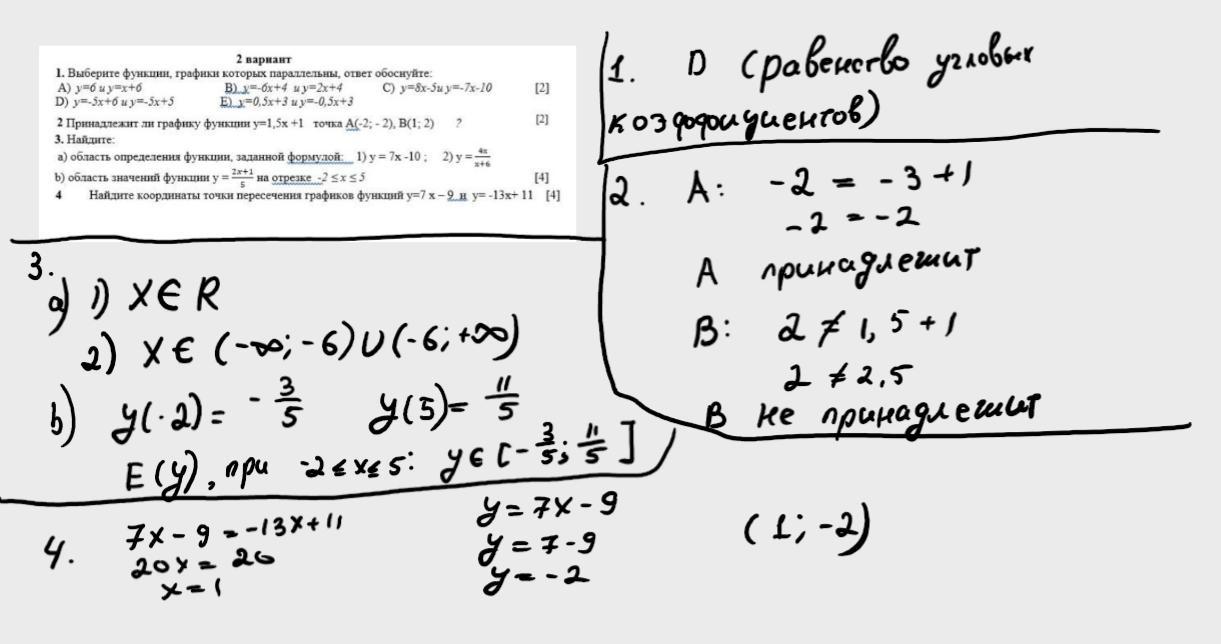 2 вариант
1. Выберите функции, графики которых параллельны, ответ обоснуйте:
A) y=6 и y=x+6 B) y=-6x+4 и y=2x+4 C) y=8x-5и y=-7x-10 [2]
D) y=-5x+6 и y=-5x+5 E) y=0,5x+3 и y=-0,5x+3
2 Принадлежит ли графику функции y=1,5x +1 точка A(-2; - 2), B(1; 2) ? [2]
3. Найдите:
a) область определения функции, заданной формулой: 1) y = 7x -10 ; 2) y = 4x/x+6
b) область значений функции y = 2x+1/5 на отрезке -2 ≤ x ≤ 5 [4]
4 Найдите координаты точки пересечения графиков функций y=7 x – 9 и y= -13x+ 11 [4]
1. D (равенство угловых
коэффициентов)
2. A: -2 = -3+1
-2 = -2
A принадлежит
B: 2 ≠ 1,5 + 1
2 ≠ 2,5
B не принадлежит
3.
a) 1) X∈R
2) X∈ (-∞; -6)∪(-6; +∞)
b) y(-2)= -3/5 y(5)= 11/5
E(y), при -2≤x≤5: y∈[-3/5; 11/5]
4. 7x-9=-13x+11
20x=20
x=1
y=7x-9
y=7-9
y=-2
(1; -2)